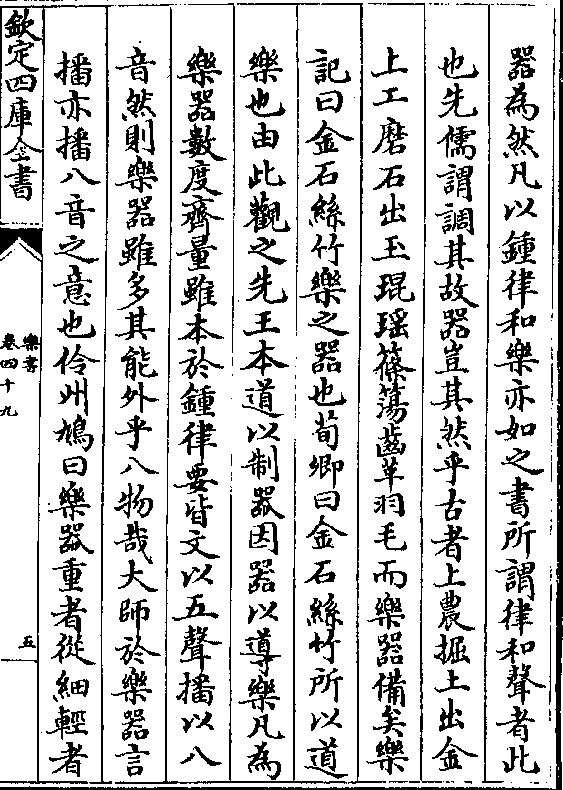 器為然凡以鍾律和樂亦如之書所謂律和聲者此
也先儒謂調其故器豈其然乎古者上農掘土出金
上工磨石出玉琨瑶篠蕩齒革羽毛而樂器備矣樂
記曰金石絲竹樂之器也荀卿曰金石絲竹所以道
樂也由此觀之先王本道以制器因器以導樂凡為
樂器數度齊量雖本於鍾律要皆文以五聲播以八
音然則樂器雖多其能外乎八物哉大師於樂器言
播亦播八音之意也伶州鳩曰樂器重者從細輕者
欽定四庫全書
樂書
卷四十九
五